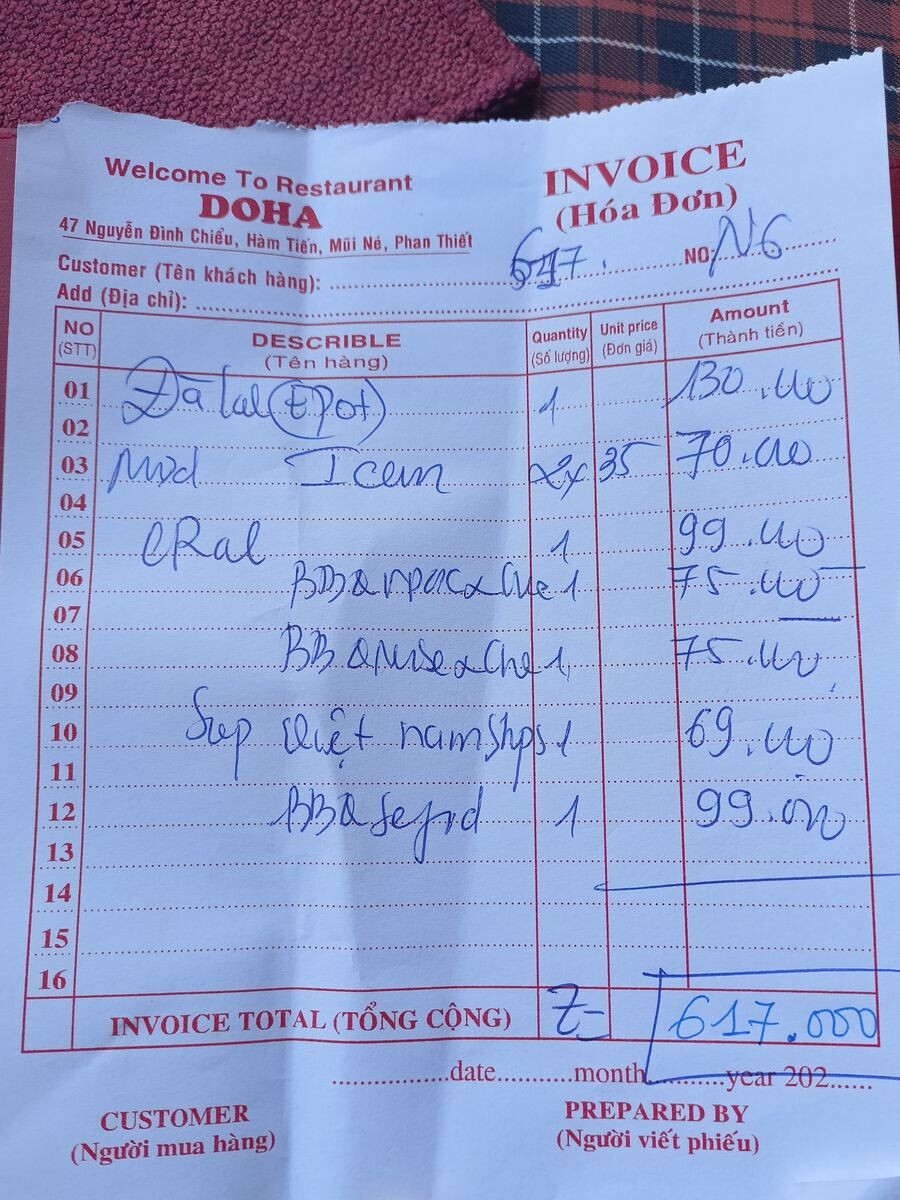 Welcome To Restaurant
DOHA
47 Nguyễn Đình Chiểu, Hàm Tiến, Mũi Né, Phan Thiết
INVOICE
(Hóa Đơn)
NO: N6
Customer (Tên khách hàng):
Add (Địa chỉ):
NO (STT) DESCRIBLE (Tên hàng) Quantity (Số lượng) Unit price (Đơn giá) Amount (Thành tiền)
01 1 130.000
02
03 2x 35 70.000
04
05 1 99.000
06 BBQ 1 75.000
07
08 BBQ 1 75.000
09
10 Sup việt nam 1 69.000
11
12 BBQ 1 99.000
13
14
15
16
INVOICE TOTAL (TỔNG CỘNG) 617.000
date month year 202
CUSTOMER
(Người mua hàng)
PREPARED BY
(Người viết phiếu)